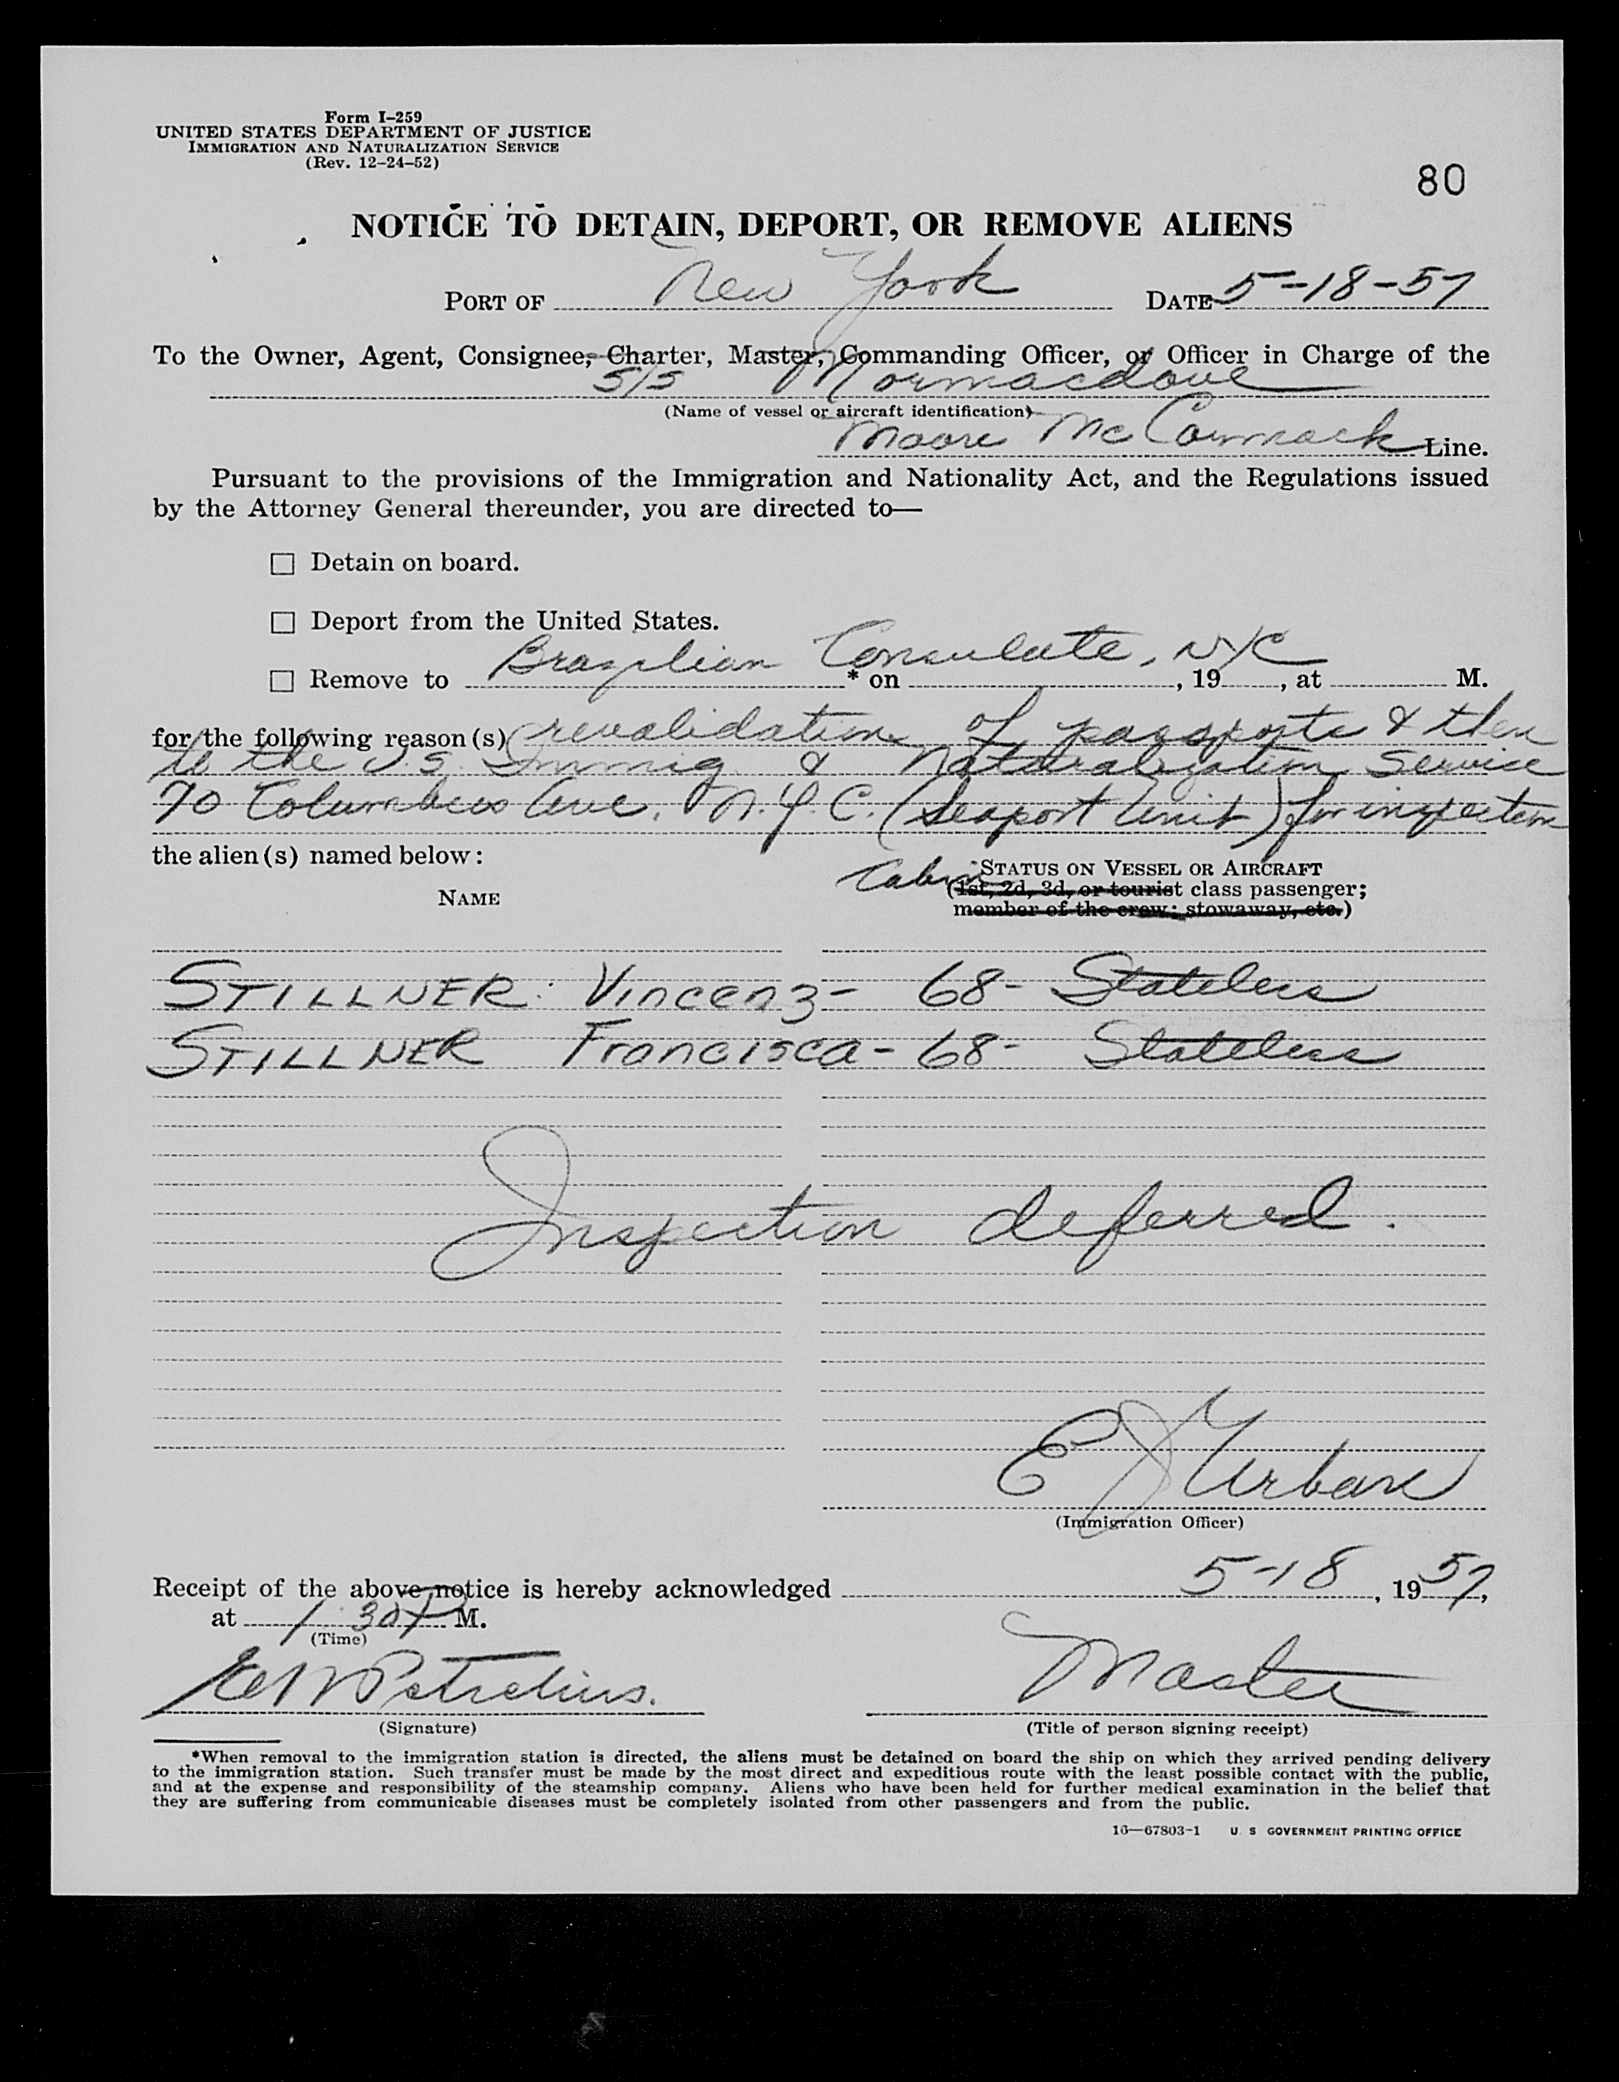 Form I-259
UNITED STATES DEPARTMENT OF JUSTICE
IMMIGRATION AND NATURALIZATION SERVICE
(Rev. 12-24-52)
80
NOTICE TO DETAIN, DEPORT, OR REMOVE ALIENS
PORT OF New York DATE 5-18-57
To the Owner, Agent, Consignee, Charter, Master, Commanding Officer, or Officer in Charge of the
S/S Mormacdove
(Name of vessel or aircraft identification)
Moore McCormack Line.
Pursuant to the provisions of the Immigration and Nationality Act, and the Regulations issued
by the Attorney General thereunder, you are directed to—
☐ Detain on board.
☐ Deport from the United States.
☐ Remove to Brazilian Consulate, NYC * on , 19 , at M.
for the following reason(s) revalidation of passports & then
to the U.S. Immig. & Naturalization Service
70 Columbus Ave. N.Y.C. (Seaport Unit) for inspection
the alien(s) named below:
NAME
Cabin STATUS ON VESSEL OR AIRCRAFT
(1st, 2d, 3d, or tourist class passenger;
member of the crew; stowaway, etc.)
STILLNER: Vincenz - 68 - Stateless
STILLNER Francisca - 68 - Stateless
Inspection deferred.
E J Urban
(Immigration Officer)
Receipt of the above notice is hereby acknowledged 5-18, 1957,
at 1:30 P M.
(Time)
Master
(Signature) (Title of person signing receipt)
*When removal to the immigration station is directed, the aliens must be detained on board the ship on which they arrived pending delivery
to the immigration station. Such transfer must be made by the most direct and expeditious route with the least possible contact with the public,
and at the expense and responsibility of the steamship company. Aliens who have been held for further medical examination in the belief that
they are suffering from communicable diseases must be completely isolated from other passengers and from the public.
16—67803-1 U S GOVERNMENT PRINTING OFFICE